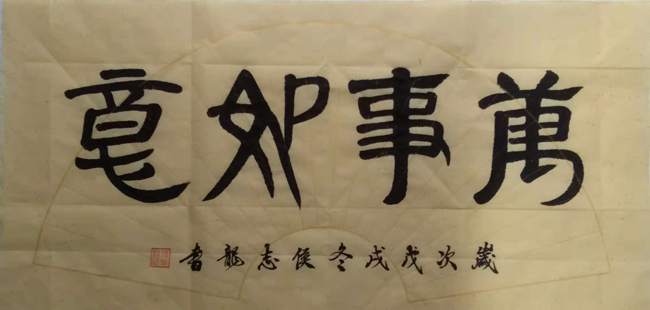 萬事如意
歲次戊戌冬侯志龍書